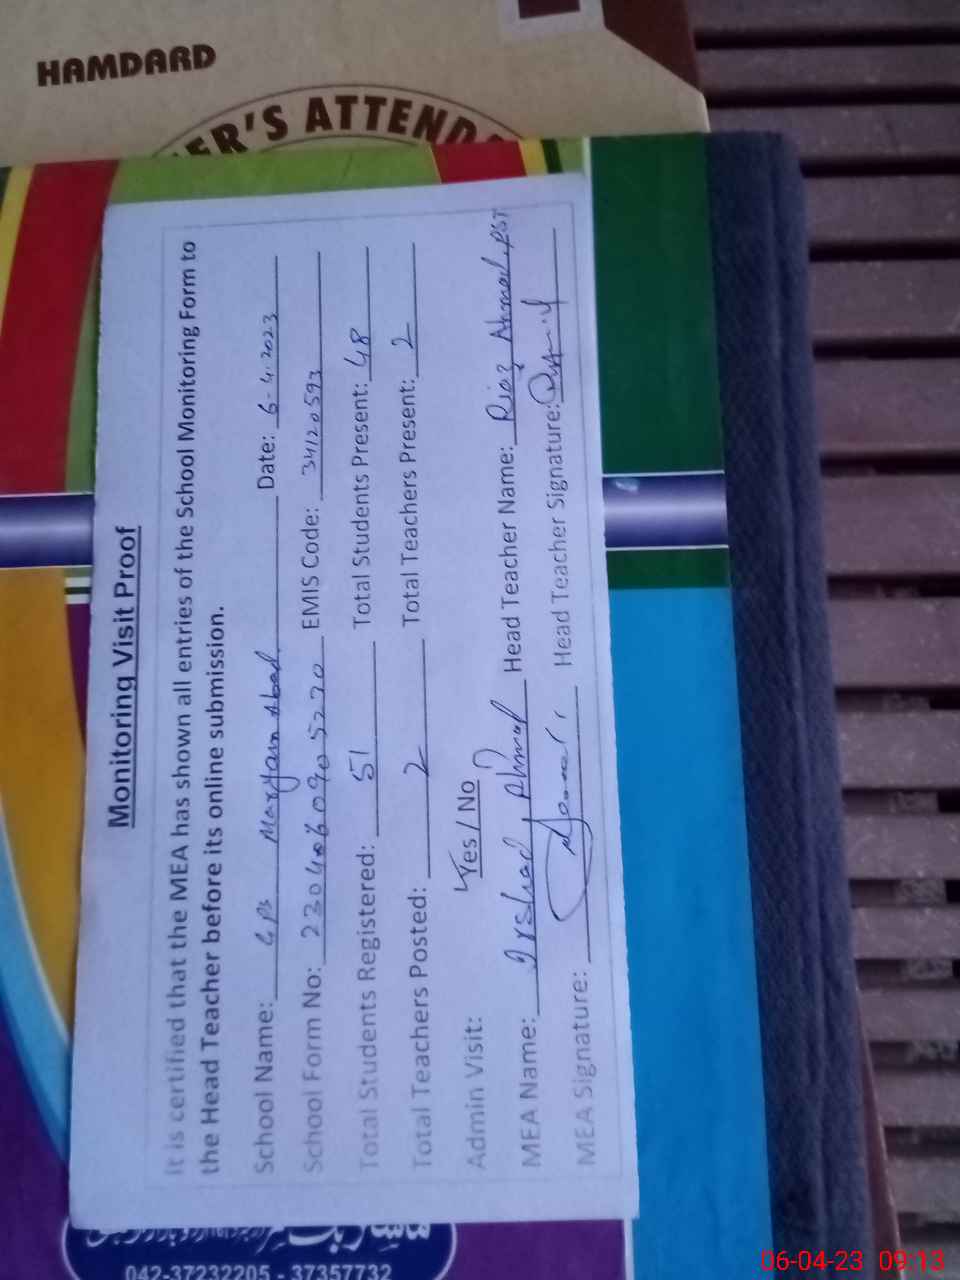 HAMDARD
ER'S ATTEND
Monitoring Visit Proof
It is certified that the MEA has shown all entries of the School Monitoring Form to
the Head Teacher before its online submission.
School Name: GPS Maryam Abad Date: 6-4-2023
School Form No: 2304060905270 EMIS Code: 34120593
Total Students Registered: 51 Total Students Present: 48
Total Teachers Posted: 2 Total Teachers Present: 2
Admin Visit: Yes / No
MEA Name: Irshad Ahmad Head Teacher Name: Riaz Ahmad, PST
MEA Signature: Head Teacher Signature:
042-37232205 - 37357732
06-04-23 09:13